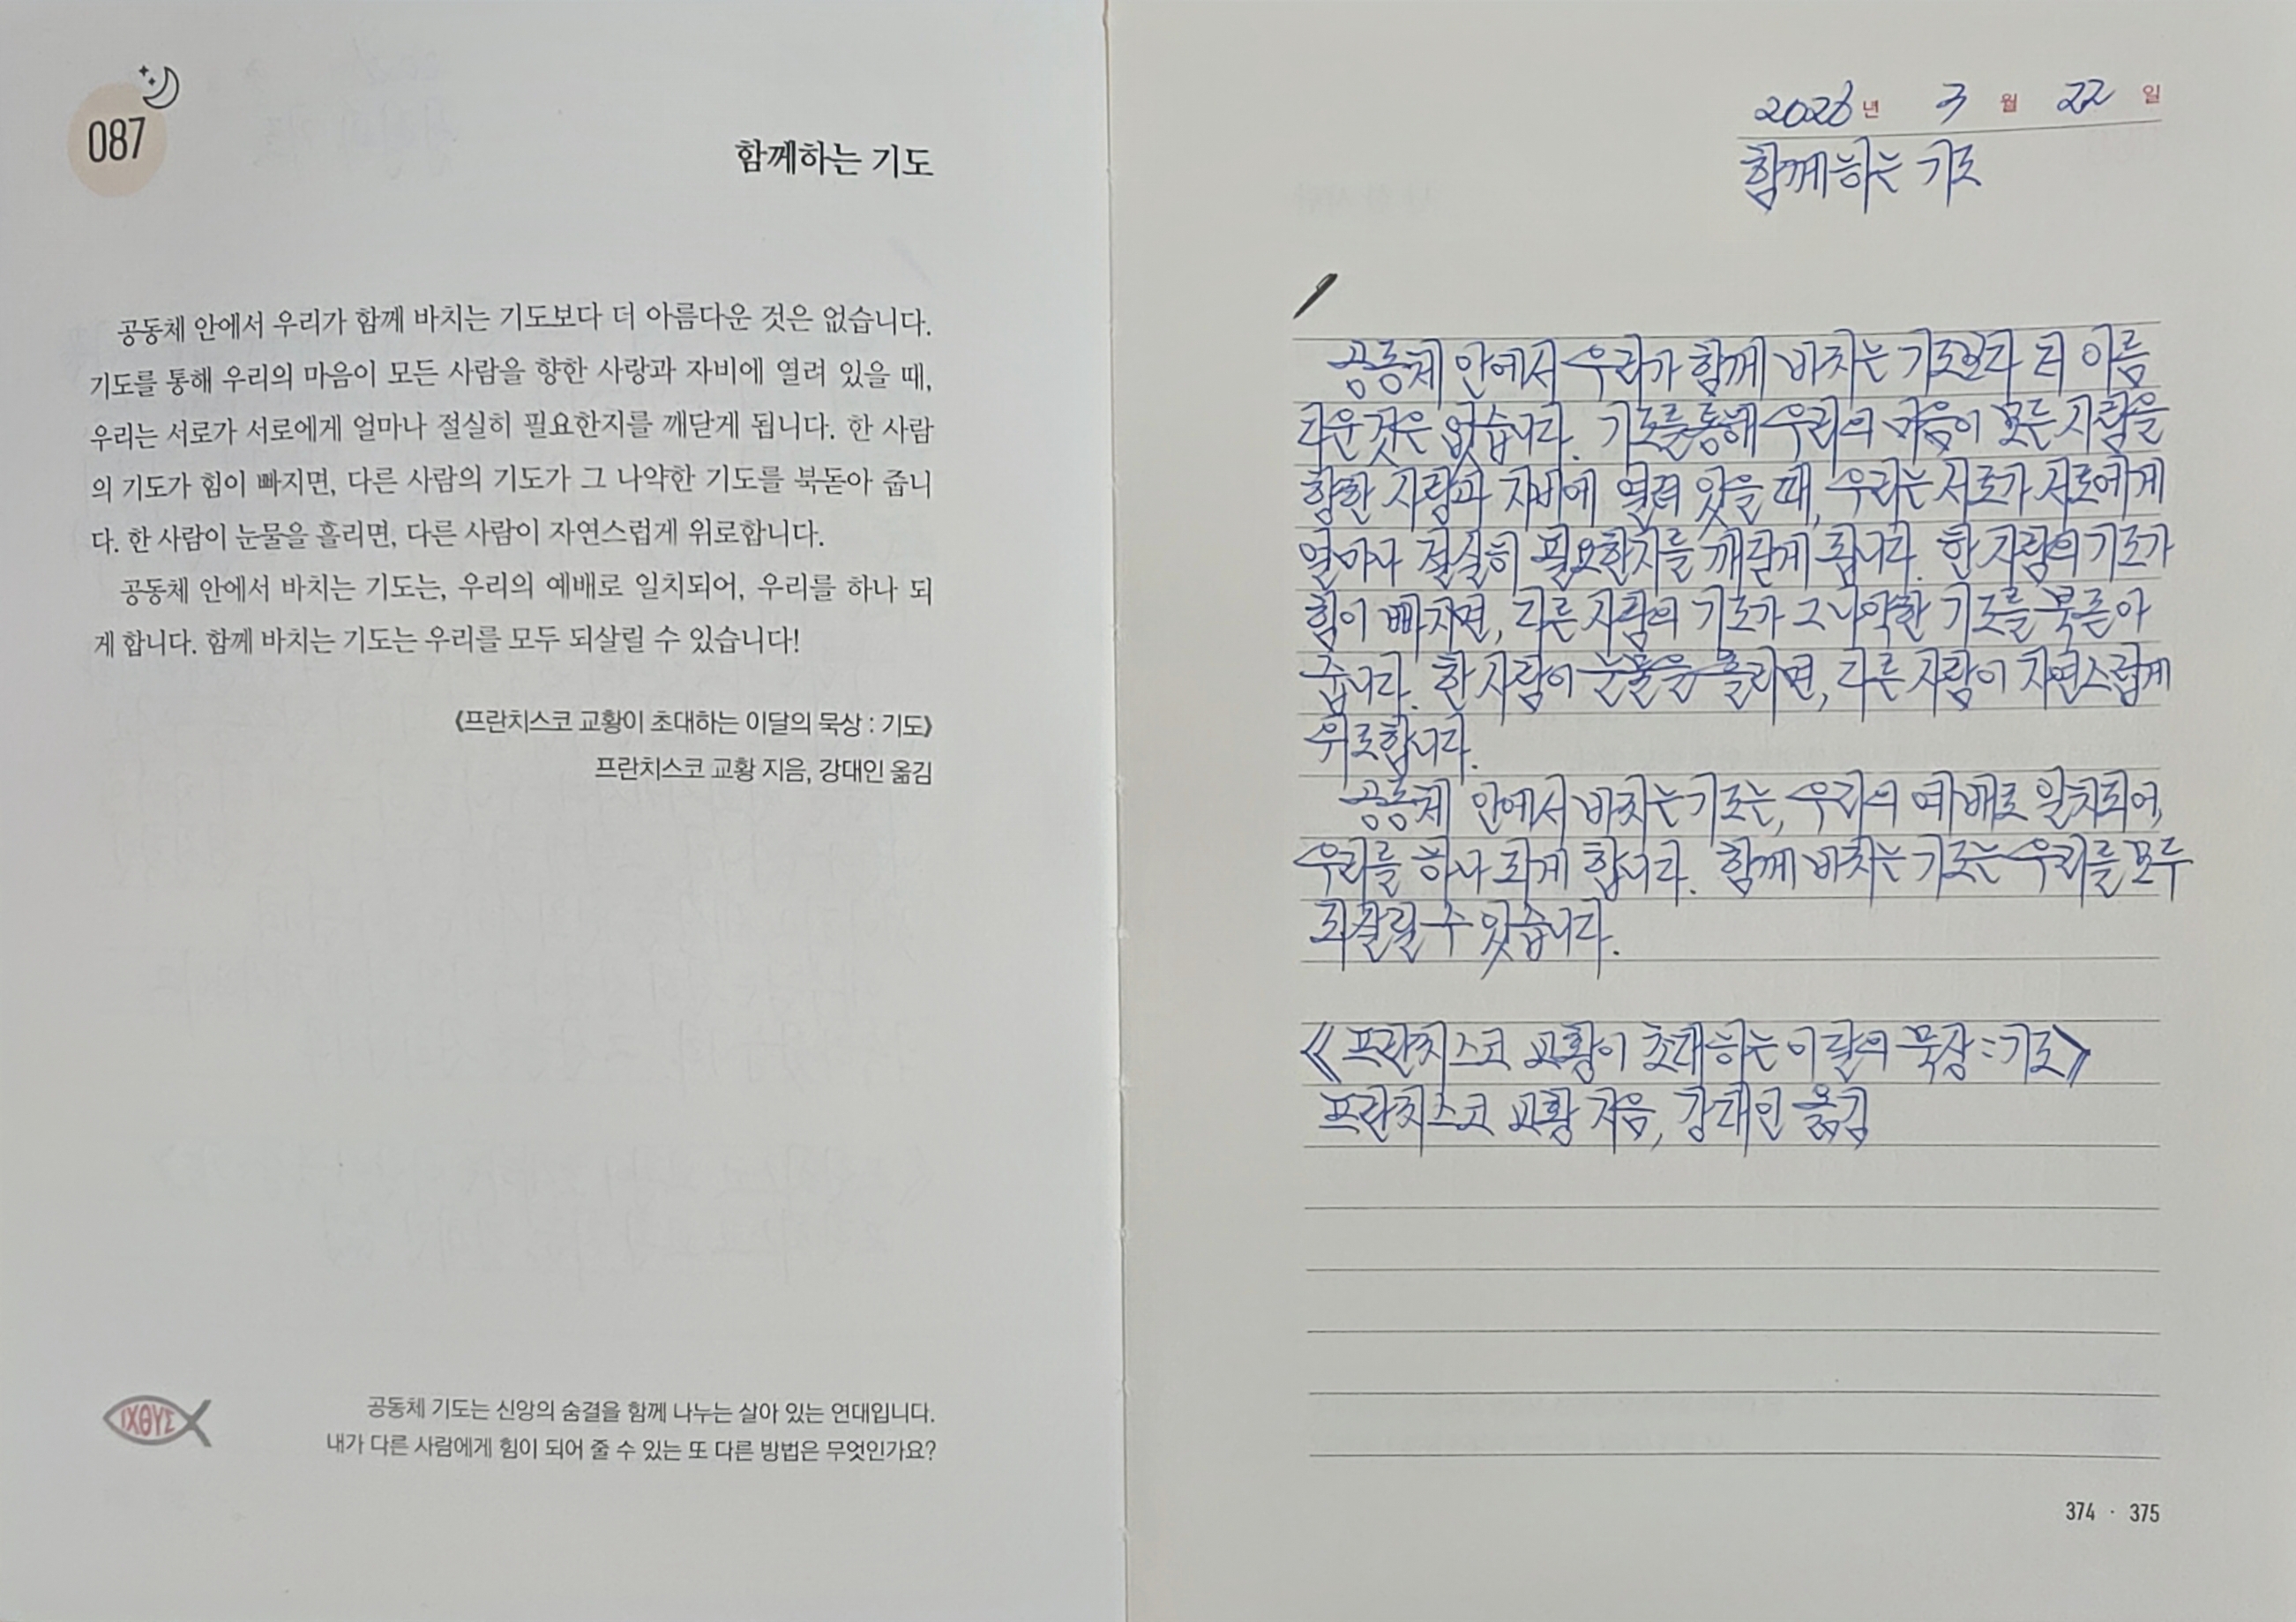 087
함께하는 기도
공동체 안에서 우리가 함께 바치는 기도보다 더 아름다운 것은 없습니다.
기도를 통해 우리의 마음이 모든 사람을 향한 사랑과 자비에 열려 있을 때,
우리는 서로가 서로에게 얼마나 절실히 필요한지를 깨닫게 됩니다. 한 사람
의 기도가 힘이 빠지면, 다른 사람의 기도가 그 나약한 기도를 북돋아 줍니
다. 한 사람이 눈물을 흘리면, 다른 사람이 자연스럽게 위로합니다.
공동체 안에서 바치는 기도는, 우리의 예배로 일치되어, 우리를 하나 되
게 합니다. 함께 바치는 기도는 우리를 모두 되살릴 수 있습니다!
《프란치스코 교황이 초대하는 이달의 묵상 : 기도》
프란치스코 교황 지음, 강대인 옮김
ΙΧΘΥΣ
공동체 기도는 신앙의 숨결을 함께 나누는 살아 있는 연대입니다.
내가 다른 사람에게 힘이 되어 줄 수 있는 또 다른 방법은 무엇인가요?
2026년 3월 22일
함께하는 기도
공동체 안에서 우리가 함께 바치는 기도보다 더 아름
다운 것은 없습니다. 기도를 통해 우리의 마음이 모든 사람을
향한 사랑과 자비에 열려 있을 때, 우리는 서로가 서로에게
얼마나 절실히 필요한지를 깨닫게 됩니다. 한 사람의 기도가
힘이 빠지면, 다른 사람의 기도가 그 나약한 기도를 북돋아
줍니다. 한 사람이 눈물을 흘리면, 다른 사람이 자연스럽게
위로합니다.
공동체 안에서 바치는 기도는, 우리의 예배로 일치되어,
우리를 하나 되게 합니다. 함께 바치는 기도는 우리를 모두
되살릴 수 있습니다.
《프란치스코 교황이 초대하는 이달의 묵상 : 기도》
프란치스코 교황 지음, 강대인 옮김
374 · 375